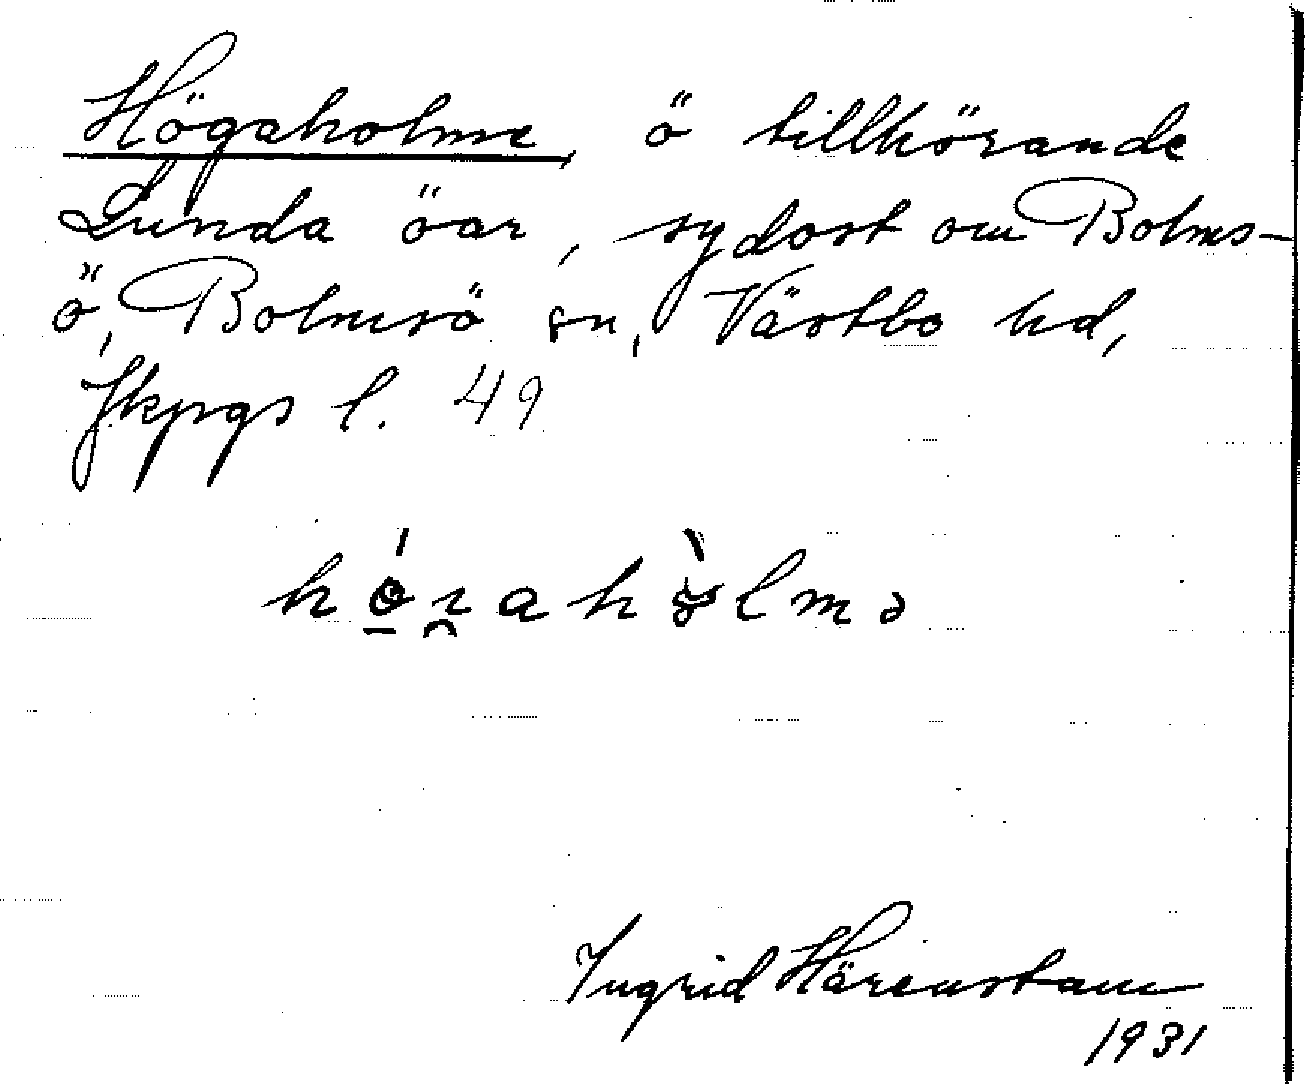 Högaholme, ö tillhörande
Lunda öar, sydost om Bolms-
ö, Bolmsö sn, Västbo hd,
Jkpgs l. 49
Ingrid Härenstam
1931